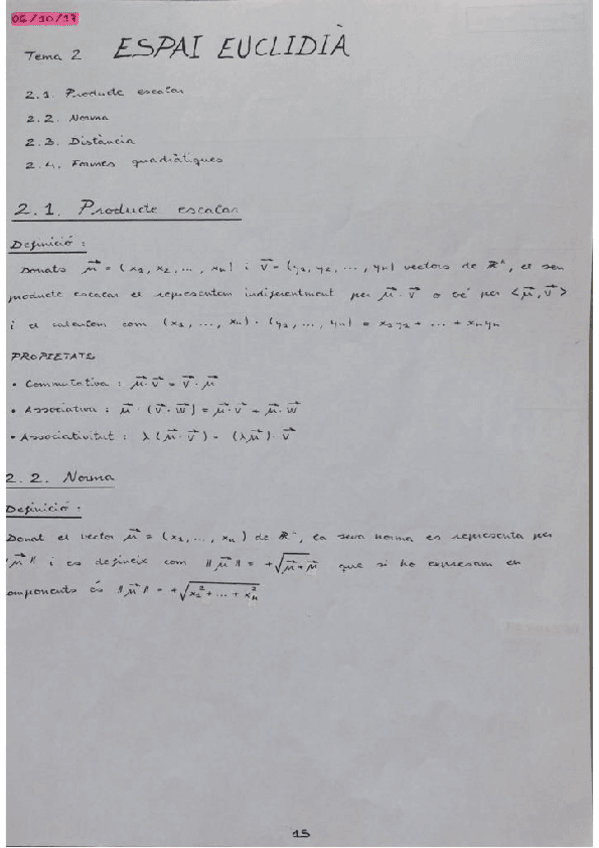 06/10/17
Tema 2 ESPAI EUCLIDIÀ
2.1. Producte escalar
2.2. Norma
2.3. Distància
2.4. Formes quadràtiques
2.1. Producte escalar
Definició:
Donats μ⃗ = (x₁, x₂, ..., xₙ) i v⃗ = (y₁, y₂, ..., yₙ) vectors de ℝⁿ, el seu
producte escalar el representam indiferentment per μ⃗ · v⃗ o bé per <μ⃗, v⃗>
i el calculem com (x₁, ..., xₙ) · (y₁, ..., yₙ) = x₁y₁ + ... + xₙyₙ
PROPIETATS
• Commutativa : μ⃗ · v⃗ = v⃗ · μ⃗
• Associativa : μ⃗ · (v⃗ · w⃗) = μ⃗ · v⃗ + μ⃗ · w⃗
• Associativitat : λ(μ⃗ · v⃗) = (λμ⃗) · v⃗
2.2. Norma
Definició:
Donat el vector μ⃗ = (x₁, ..., xₙ) de ℝⁿ, la seva norma es representa per
‖μ⃗‖ i es defineix com ‖μ⃗‖ = +√(μ⃗ · μ⃗) que si ho expresam en
components és ‖μ⃗‖ = +√(x₁² + ... + xₙ²)
15